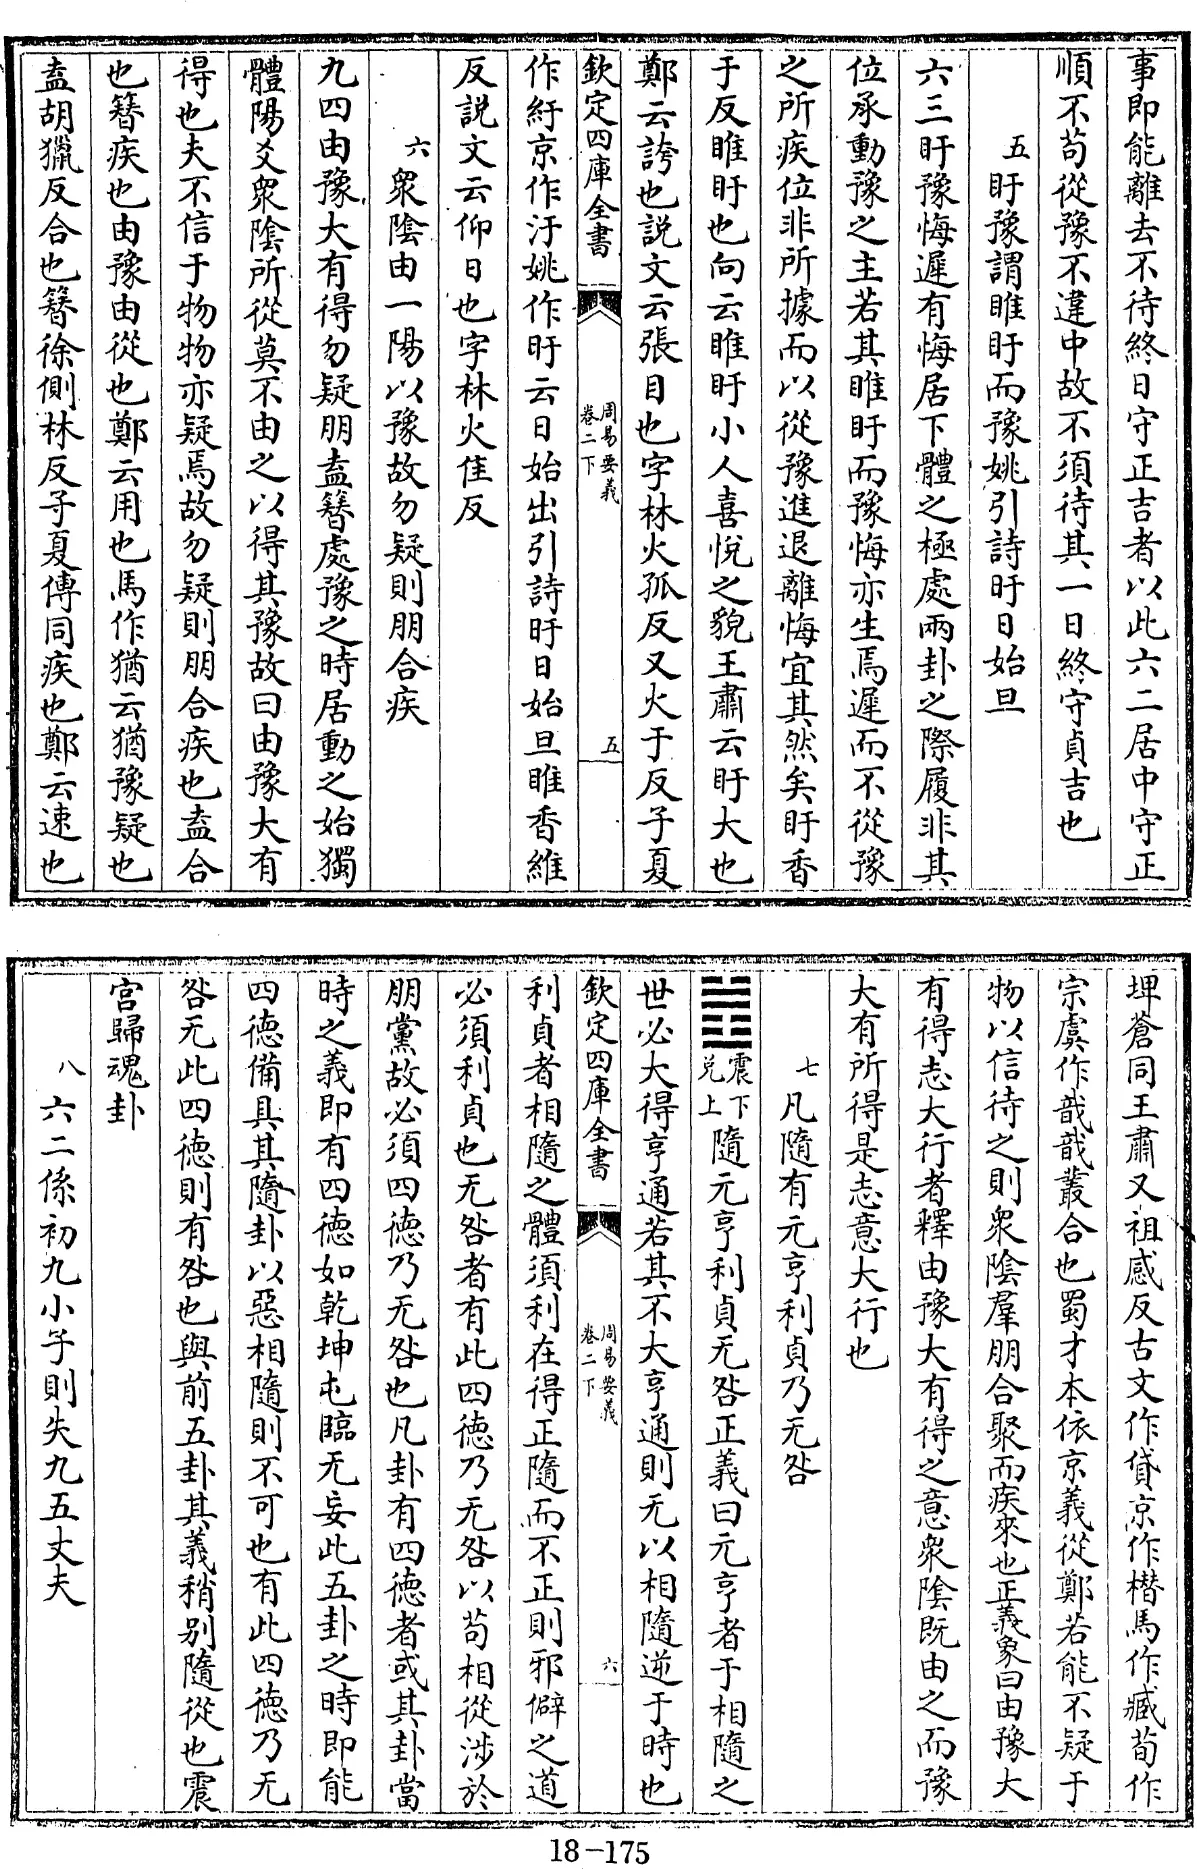 事即能離去不待終日守正吉者以此六二居中守正
順不苟從豫不違中故不須待其一日終守貞吉也
五盱豫謂睢盱而豫姚引詩盱日始旦
六三盱豫悔遲有悔居下體之極處兩卦之際履非其
位承動豫之主若其睢盱而豫悔亦生焉遲而不從豫
之所疾位非所據而以從豫進退離悔宜其然矣盱香
于反睢盱也向云睢盱小人喜悅之貌王肅云盱大也
鄭云誇也説文云張目也字林火孤反又火于反子夏
欽定四庫全書
周易要義
卷二下
五
作紆京作汙姚作盱云日始出引詩盱日始旦睢香維
反説文云仰日也字林火隹反
六衆陰由一陽以豫故勿疑則朋合疾
九四由豫大有得勿疑朋盍簪處豫之時居動之始獨
體陽爻衆陰所從莫不由之以得其豫故曰由豫大有
得也夫不信于物物亦疑焉故勿疑則朋合疾也盍合
也簪疾也由豫由從也鄭云用也馬作猶云猶豫疑也
盍胡獵反合也簪徐側林反子夏傳同疾也鄭云速也
埤蒼同王肅又祖感反古文作貸京作撍馬作臧荀作
宗虞作戠戠叢合也蜀才本依京義從鄭若能不疑于
物以信待之則衆陰羣朋合聚而疾來也正義象曰由豫大
有得志大行者釋由豫大有得之意衆陰既由之而豫
大有所得是志意大行也
七凡隨有元亨利貞乃无咎
䷐震下兌上隨元亨利貞无咎正義曰元亨者于相隨之
世必大得亨通若其不大亨通則无以相隨逆于時也
欽定四庫全書
周易要義
卷二下
六
利貞者相隨之體須利在得正隨而不正則邪僻之道
必須利貞也无咎者有此四德乃无咎以苟相從涉於
朋黨故必須四德乃无咎也凡卦有四德者或其卦當
時之義即有四德如乾坤屯臨无妄此五卦之時即能
四德備具其隨卦以惡相隨則不可也有此四德乃无
咎无此四德則有咎也與前五卦其義稍别隨從也震
宮歸魂卦
八六二係初九小子則失九五丈夫
18-175